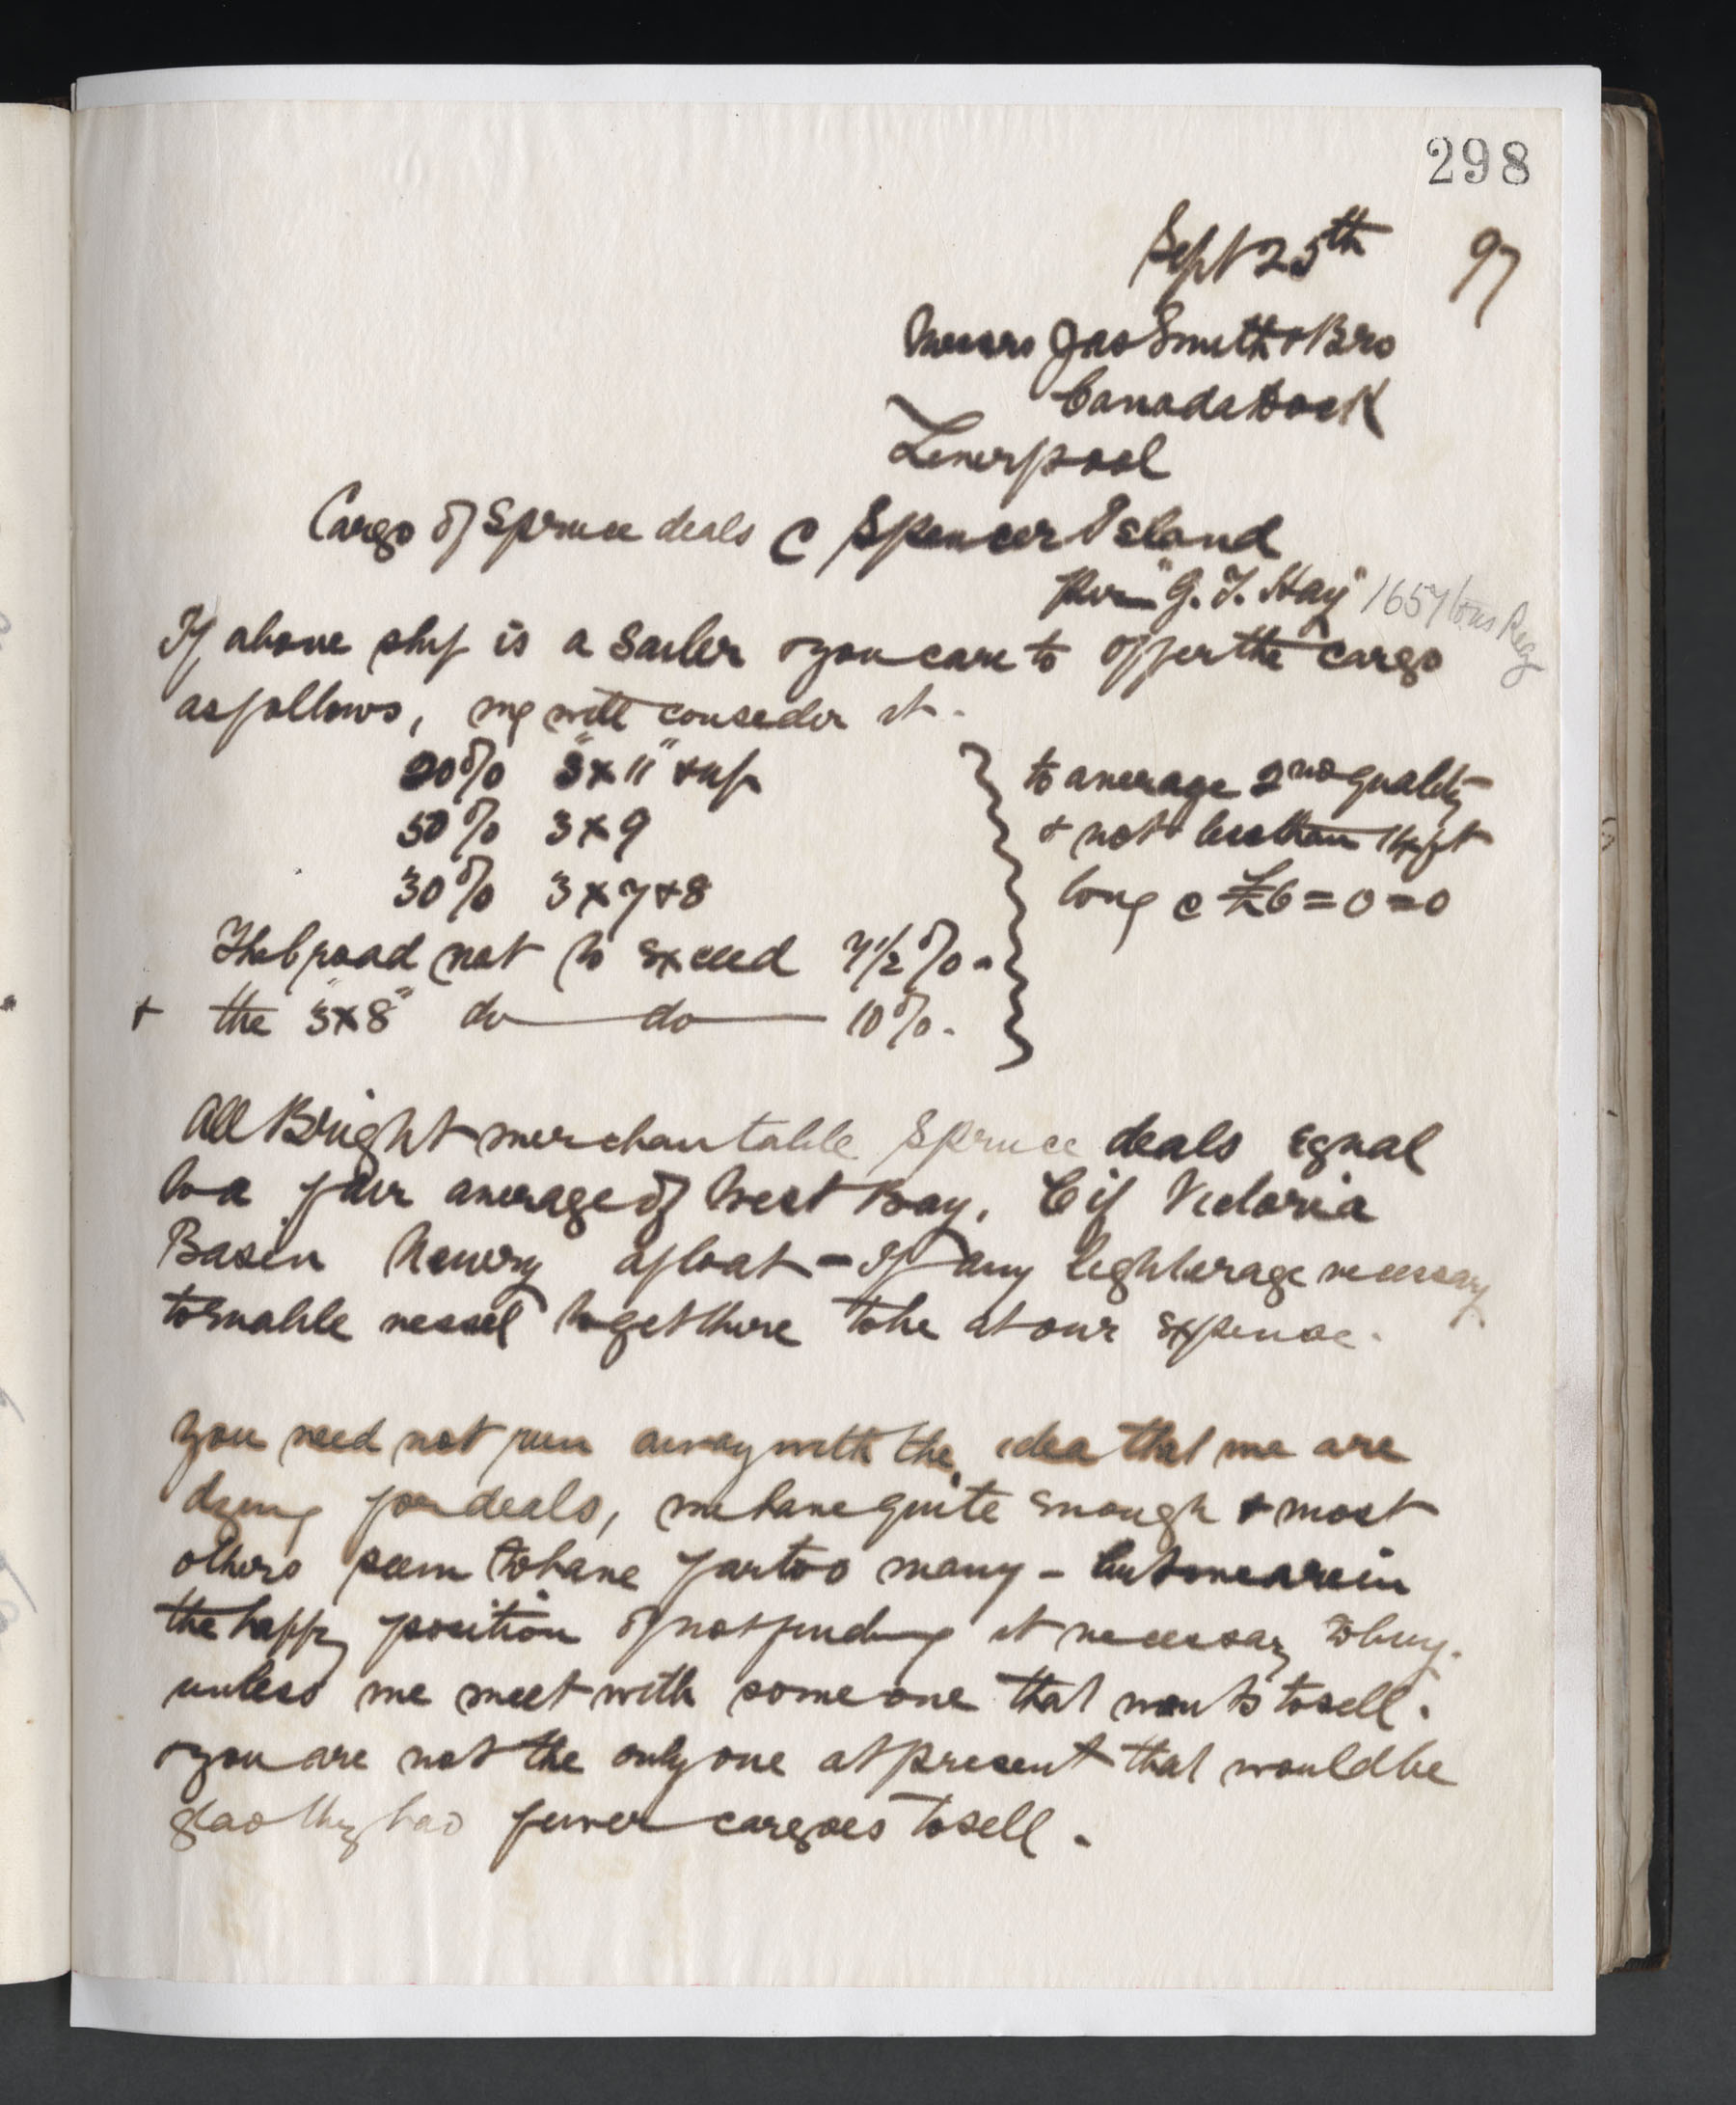 298
Sept 25th 97
Messrs Jas Smith & Bro
Canada Dock
Liverpool
Cargo of Spruce deals @ Spencer Island
per "G. T. Hay" 1657 tons Reg
If above ship is a Sailer & you care to offer the cargo
as follows, we will consider it.
20% 3 x 11" & up
50% 3 x 9
30% 3 x 7 & 8
The broad not to exceed 7 1/2 %.
& the 3 x 8" do do 10%.
to average 2nd quality
& not less than 14 ft
long @ £6=0=0
All Bright merchantable Spruce deals equal
to a fair average of West Bay. Cif Victoria
Basin Newry afloat - If any lighterage necessary
to enable vessel to get there to be at our expense.
You need not run away with the idea that we are
dying for deals, we have quite enough & most
others seem to have far too many - but we are in
the happy position of not finding it necessary to buy.
unless we meet with some one that wants to sell.
& you are not the only one at present that would be
glad they had fewer cargoes to sell.